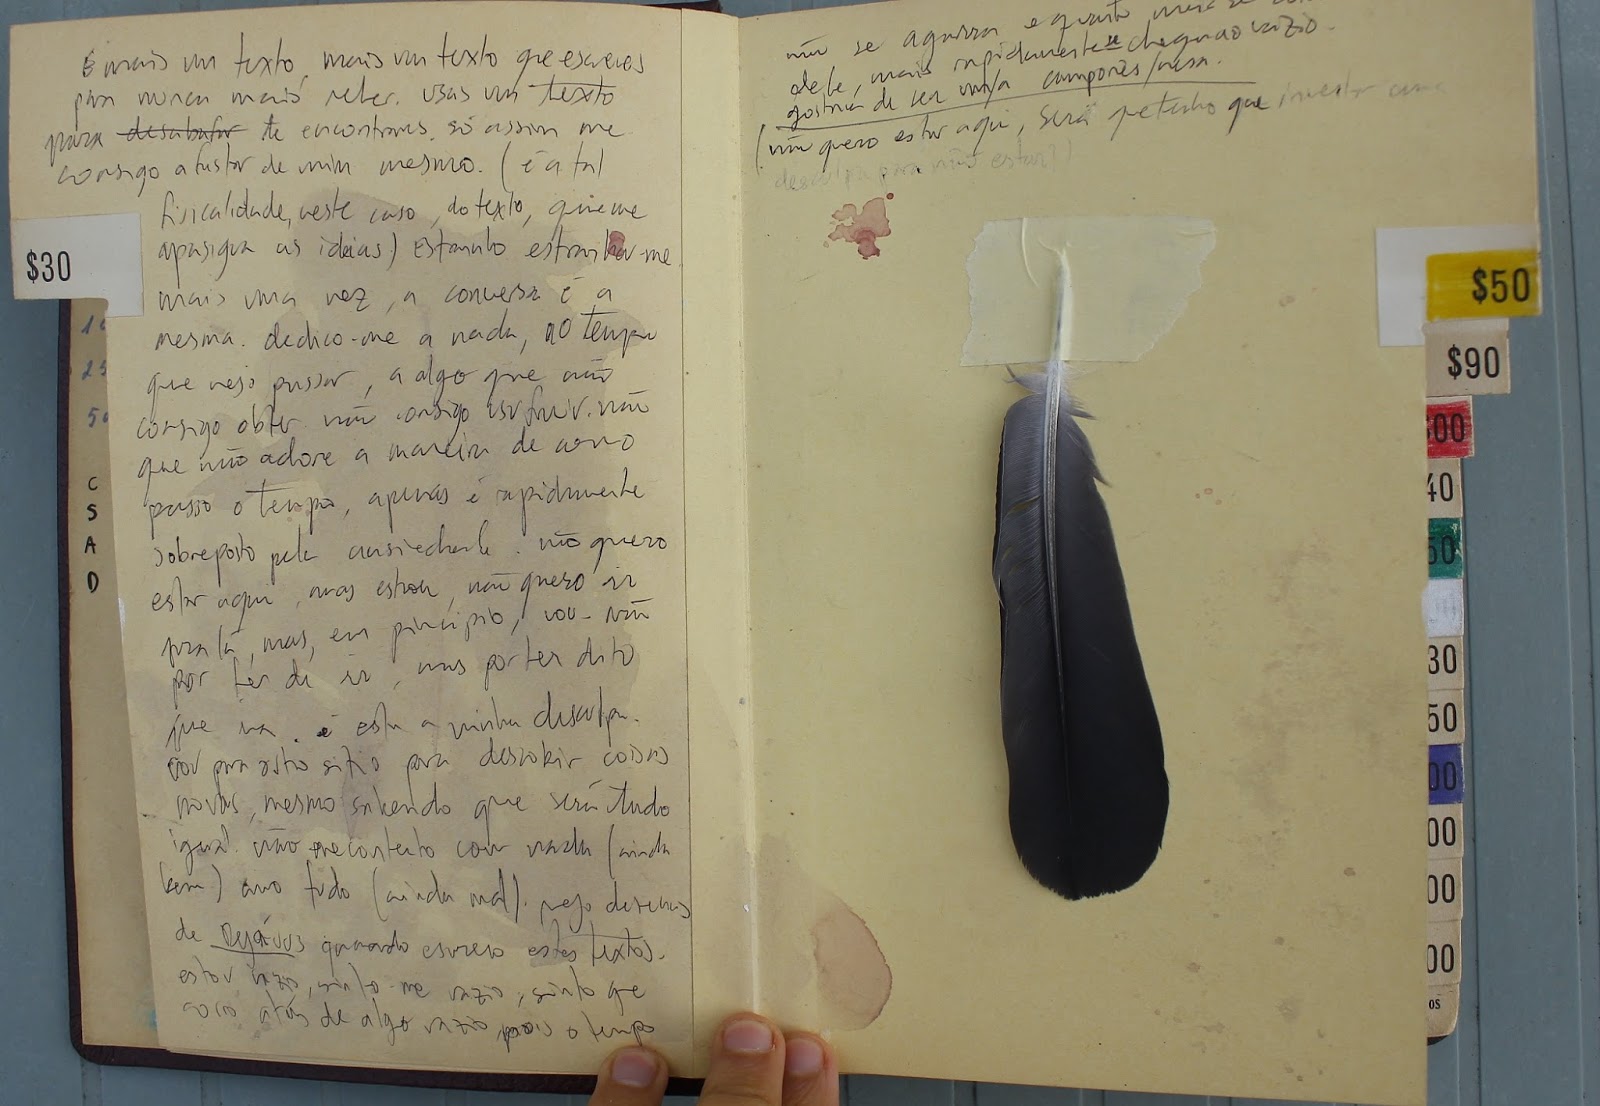 É mais um texto, mais um texto que escreves
para nunca mais reler. usas um texto
para desabafar te encontrares. só assim me
consigo afastar de mim mesmo. (é a tal
fisicalidade, neste caso, do texto, que me
apasigua as ideias) Estranho estranhar-me
mais uma vez, a conversa é a
mesma. dedico-me a nada, ao tempo
que vejo passar, a algo que não
consigo obter. não consigo usufruir. não
que não adore a maneira de como
passo o tempo, apenas é rapidamente
sobreposto pela ansiedade. não quero
estar aqui, mas estou, não quero ir
para lá, mas, em princípio, vou. não
por ter de ir, mas por ter dito
que ia. é esta a minha desculpa.
vou para outro sítio para descobrir coisas
novas, mesmo sabendo que será tudo
igual. não me contento com nada (ainda
bem) amo tudo (ainda mal).
de Dejávus quando escrevo estes textos.
estou vazio, sinto-me vazio, sinto que
corro atrás de algo vazio pois o tempo
não se agarra e quanto mais se
dele, mais rapidamente se chega ao vazio.
gostaria de ser um/a camponês/esa.
(não quero estar aqui, será que tenho que inventar uma
desculpa para não estar?)
$30
C
S
A
D
$50
$90
00
40
50
30
50
00
00
00
00
os